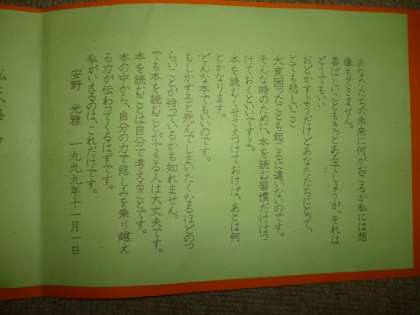 あなたたちの未来に何がおこるか私には想
像もできません。
喜ばしいこともきっとあるでしょうが、それは
どうでもいい
おどかすようだけどあなたたちにとって、
とても悲しいこと、
大変困ったことも起こるに違いないのです。
そんな時のために、本を読む習慣だけはつ
けておくといいですよ。
本を読むくせさえつけておけば、あとは何
とかなります。
どんな本でもいいのです。
もしかすると死んでしまいたくなるほどのつ
らいことが待っているかも知れません。
でも本を読むことができる人は大丈夫です。
本を読むことは自分で考えることです。
本の中から、自分の力で悲しみを乗り越え
る力が伝わってくるはずです。
私がいえるのは、これだけです。
安野 光雅 一九九九年十一月一日